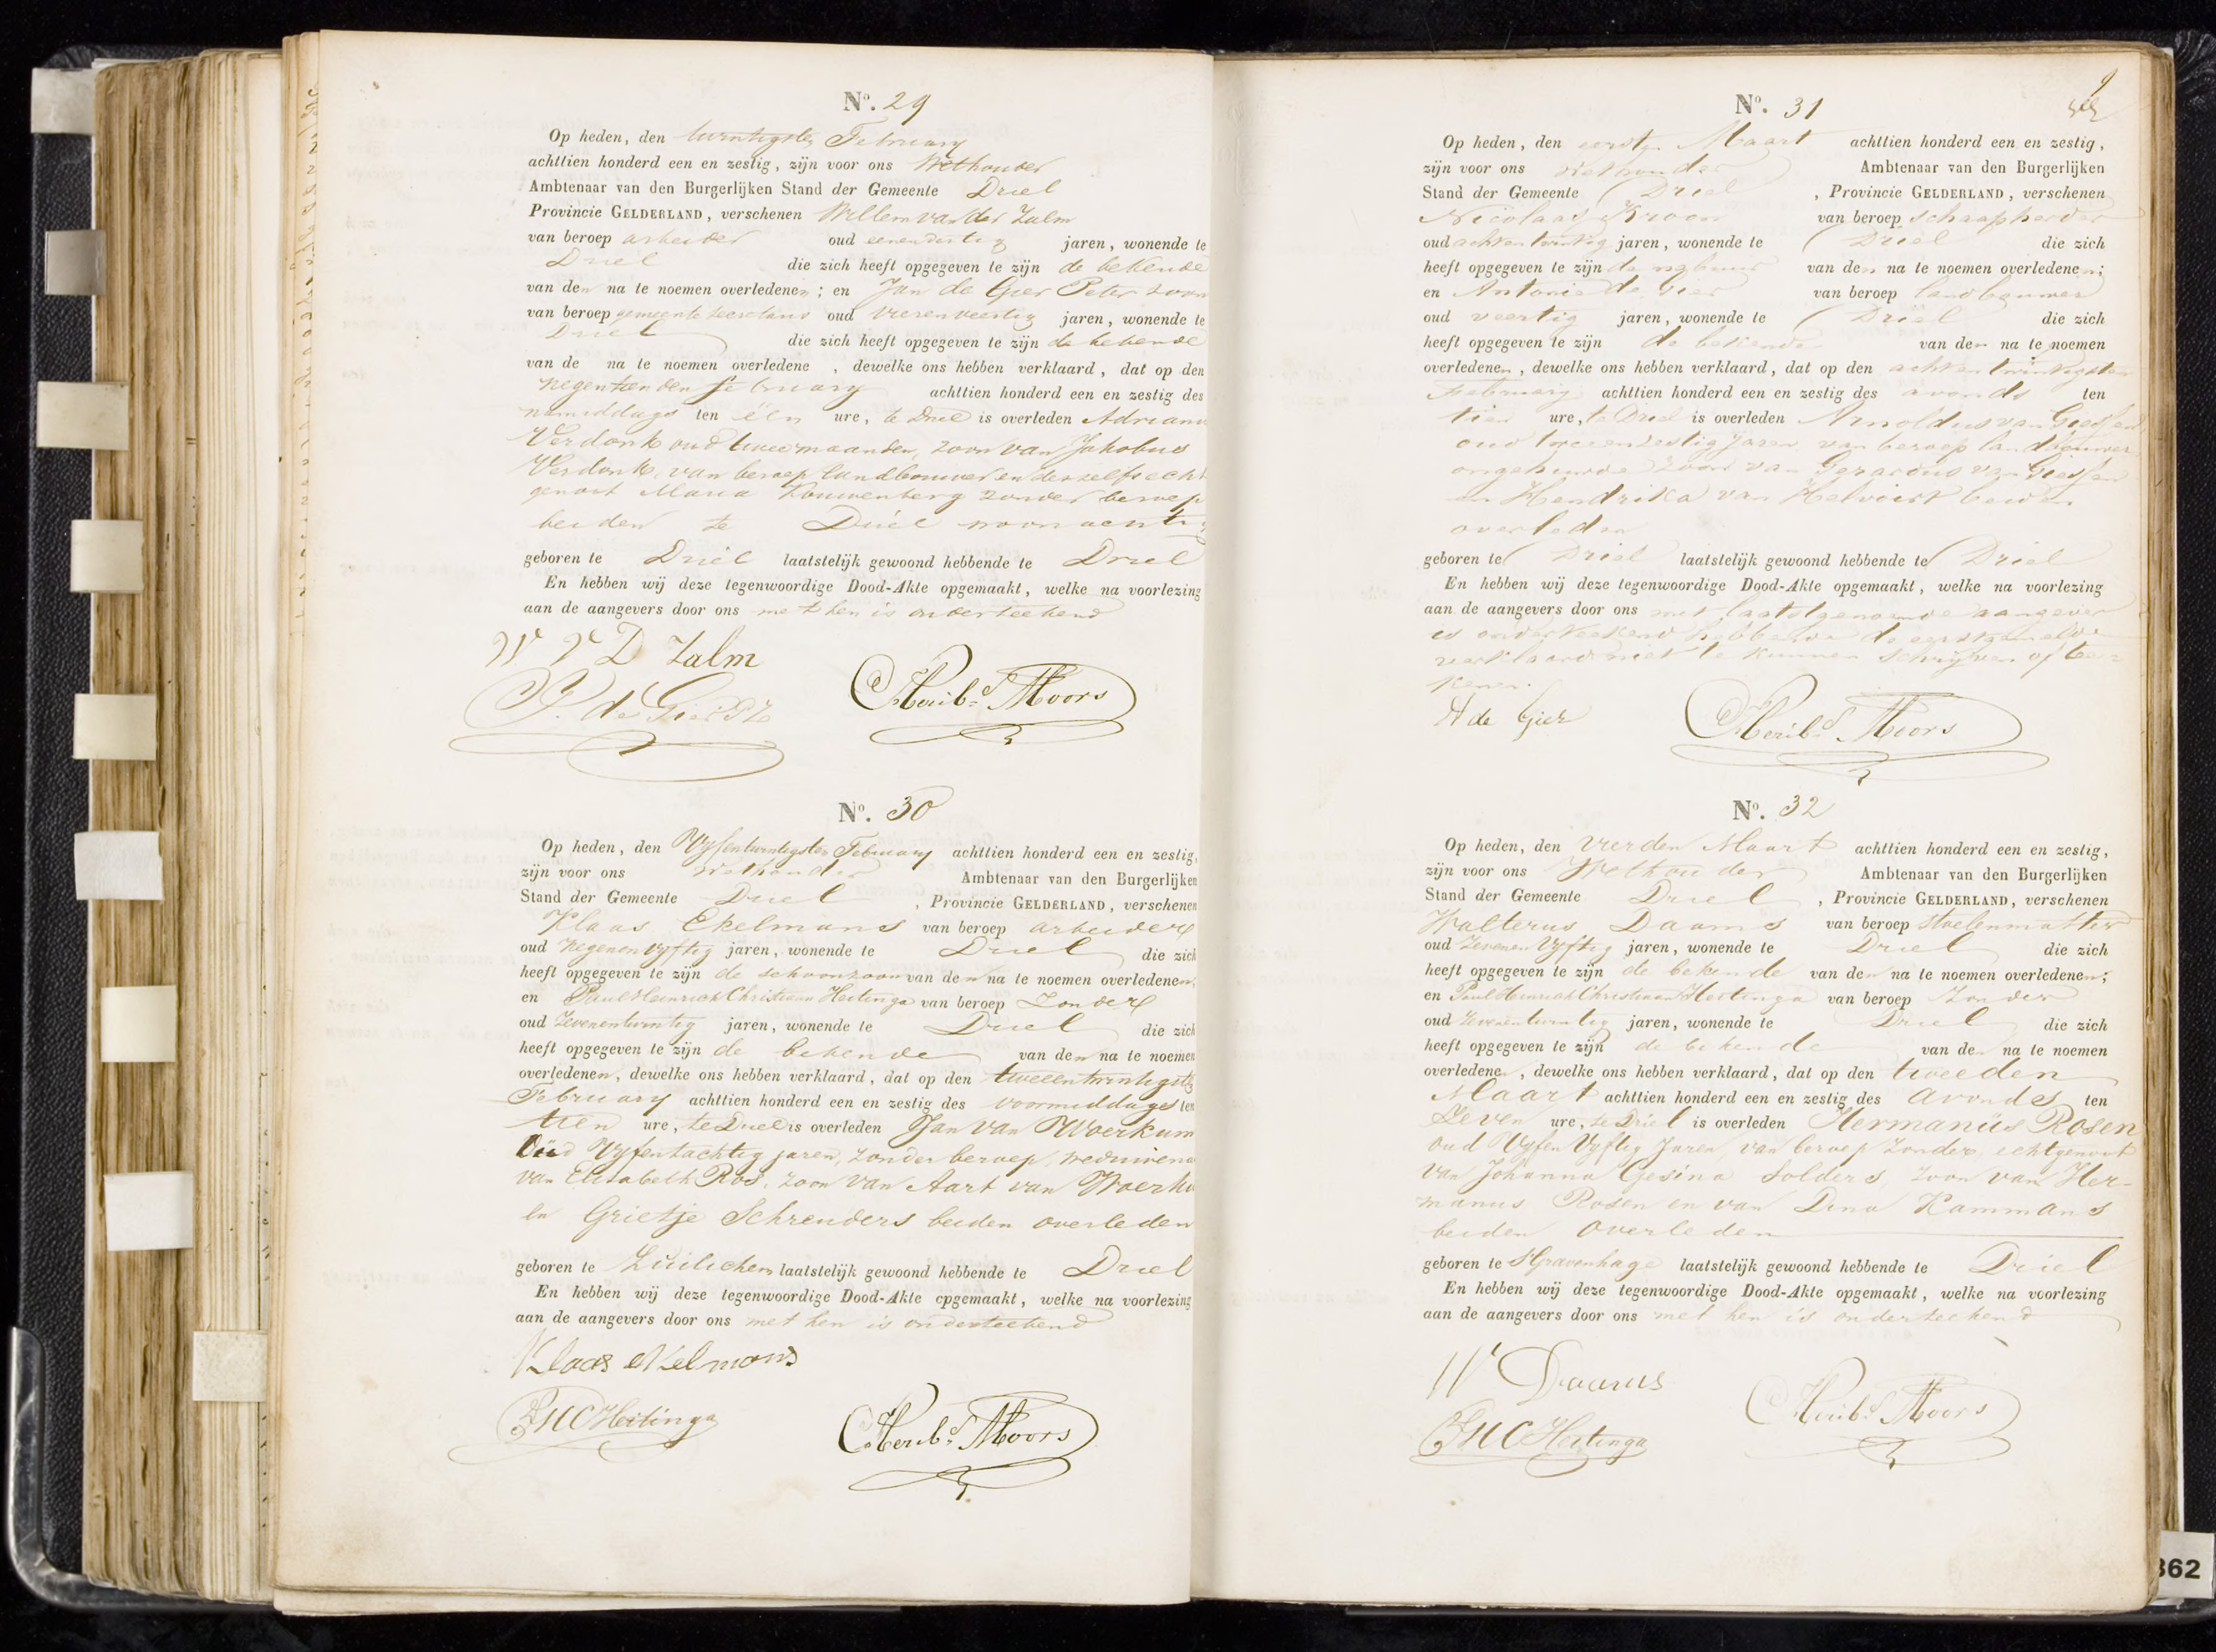 Nº. 29
Op heden, den twintigsten February
achttien honderd een en zestig, zijn voor ons Wethouder
Ambtenaar van den Burgerlijken Stand der Gemeente Driel
Provincie GELDERLAND, verschenen Willem van der Zalm
van beroep arbeider oud eenendertig jaren, wonende te
Driel die zich heeft opgegeven te zijn de bekende
van den na te noemen overledenen; en Jan de Gier Peter zoon
van beroep gemeente secretaris oud vierenveertig jaren, wonende te
Driel die zich heeft opgegeven te zijn de bekende
van de na te noemen overledene, dewelke ons hebben verklaard, dat op den
negentienden February achttien honderd een en zestig des
namiddags ten één ure, te Driel is overleden Adrianus
Verdonk oud twee maanden, zoon van Jakobus
Verdonk, van beroep landbouwer en deszelfs echt
genoot Maria Kouwenberg zonder beroep
beiden te Driel woonachtig
geboren te Driel laatstelijk gewoond hebbende te Driel
En hebben wij deze tegenwoordige Dood-Akte opgemaakt, welke na voorlezing
aan de aangevers door ons met hen is onderteekend
W V D Zalm
J. de Gier Pz
Herib. Moors
Nº. 30
Op heden, den Vyfentwintigsten February achttien honderd een en zestig,
zijn voor ons Wethouder Ambtenaar van den Burgerlijken
Stand der Gemeente Driel, Provincie GELDERLAND, verschenen
Klaas Ekelmans van beroep arbeider
oud negenenvyftig jaren, wonende te Driel die zich
heeft opgegeven te zijn de schoonzoon van den na te noemen overledenen,
en Paul Heinrich Christiaan Heitinga van beroep zonder
oud zevenentwintig jaren, wonende te Driel die zich
heeft opgegeven te zijn de bekende van den na te noemen
overledenen, dewelke ons hebben verklaard, dat op den tweeentwintigsten
February achttien honderd een en zestig des voormiddags ten
tien ure, te Driel is overleden Jan van Woerkum
Oud Vyfentachtig jaren, zonder beroep, weduwenaar
van Elisabeth Ros, zoon van Aart van Woerku
en Grietje Schreuders beiden overleden
geboren te Zuilichem laatstelijk gewoond hebbende te Driel
En hebben wij deze tegenwoordige Dood-Akte opgemaakt, welke na voorlezing
aan de aangevers door ons met hen is onderteekend
Klaas eKelmans
PHC Heitinga
Herib. Moors
Nº. 31
Op heden, den eersten Maart achttien honderd een en zestig,
zijn voor ons Wethouder Ambtenaar van den Burgerlijken
Stand der Gemeente Driel, Provincie GELDERLAND, verschenen
Nicolaas Kroon van beroep schaapherder
oud achtentwintig jaren, wonende te Driel die zich
heeft opgegeven te zijn de nabuur van den na te noemen overledenen;
en Antonie de Gier van beroep landbouwer
oud veertig jaren, wonende te Driel die zich
heeft opgegeven te zijn de bekende van den na te noemen
overledenen, dewelke ons hebben verklaard, dat op den achtentwintigsten
February achttien honderd een en zestig des avonds ten
tien ure, te Driel is overleden Arnoldus van Giessen
oud tweeenzestig Jaren, van beroep landbouwer
ongehuwde zoon van Gerardus van Giessen
en Hendrika van Helvoirt beiden
overleden
geboren te Driel laatstelijk gewoond hebbende te Driel
En hebben wij deze tegenwoordige Dood-Akte opgemaakt, welke na voorlezing
aan de aangevers door ons met laatstgenoemde aangever
is onderteekend hebbende de eerstgemelde
verklaard niet te kunnen schrijven of tee-
kenen.
A de Gier
Herib. Moors
Nº. 32
Op heden, den vierden Maart achttien honderd een en zestig,
zijn voor ons Wethouder Ambtenaar van den Burgerlijken
Stand der Gemeente Driel, Provincie GELDERLAND, verschenen
Walterus Daams van beroep stoelenmatter
oud zevenenVyftig jaren, wonende te Driel die zich
heeft opgegeven te zijn de bekende van den na te noemen overledenen;
en Paul Heinrich Christiaan Heitinga van beroep zonder
oud zevenentwintig jaren, wonende te Driel die zich
heeft opgegeven te zijn de bekende van den na te noemen
overledenen, dewelke ons hebben verklaard, dat op den tweeden
Maart achttien honderd een en zestig des avonds ten
zeven ure, te Driel is overleden Hermanüs Rosen
oud VyfenVyftig Jaren, van beroep zonder, echtgenoot
van Johanna Gesina Solders, zoon van Her-
manus Rosen en van Dina Kammans
beiden overleden
geboren te s'Gravenhage laatstelijk gewoond hebbende te Driel
En hebben wij deze tegenwoordige Dood-Akte opgemaakt, welke na voorlezing
aan de aangevers door ons met hen is onderteekend
W Daams
PHC Heitinga
Herib. Moors
362